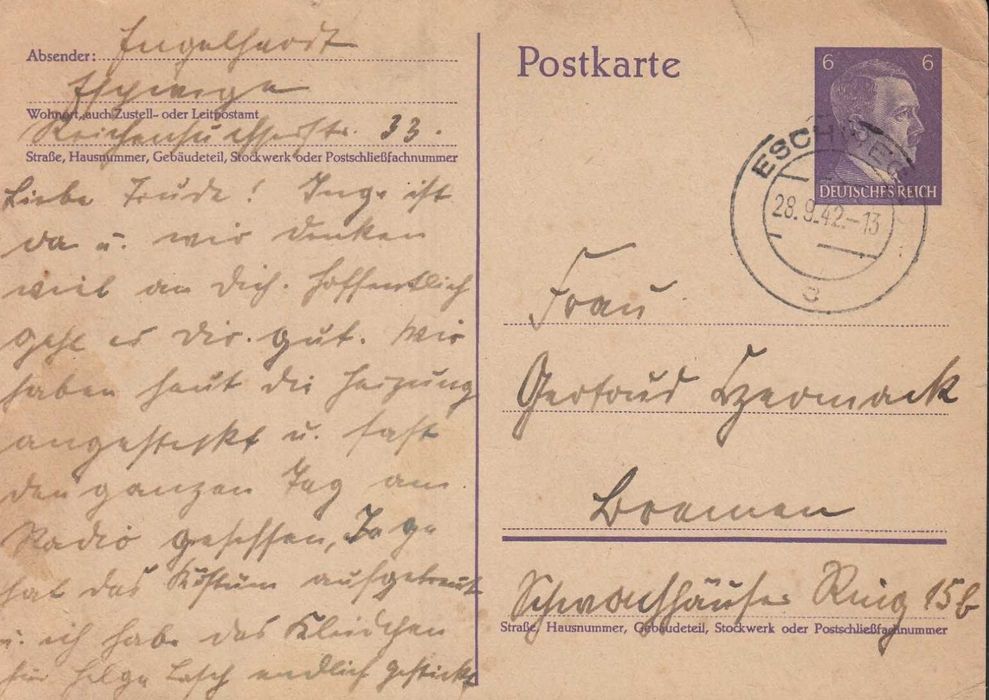 Absender: Engelhardt
Eschwege
Wohnort, auch Zustell- oder Leitpostamt
Reichensachserstr. 33.
Straße, Hausnummer, Gebäudeteil, Stockwerk oder Postschließfachnummer
Liebe Trude! Inge ist
da u. wir denken
viel an Dich. Hoffentlich
geht es Dir gut. Wir
haben heut die Heizung
angesteckt u. fast
den ganzen Tag am
Radio gesessen, Inge
hat das Kostüm aufgetrennt
u. ich habe das Kleidchen
für Helga Lasch endlich gestickt
Postkarte
6 6
DEUTSCHES REICH
ESCHWEGE
28.9.42.-13
c
Frau
Gertrud Czermack
Bremen
Schwachhäuser Ring 15b
Straße, Hausnummer, Gebäudeteil, Stockwerk oder Postschließfachnummer